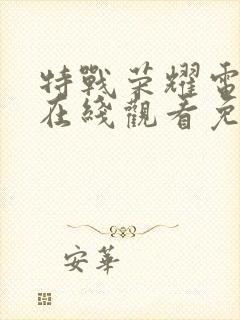 特戰荣耀電
在綫觀看免
安華